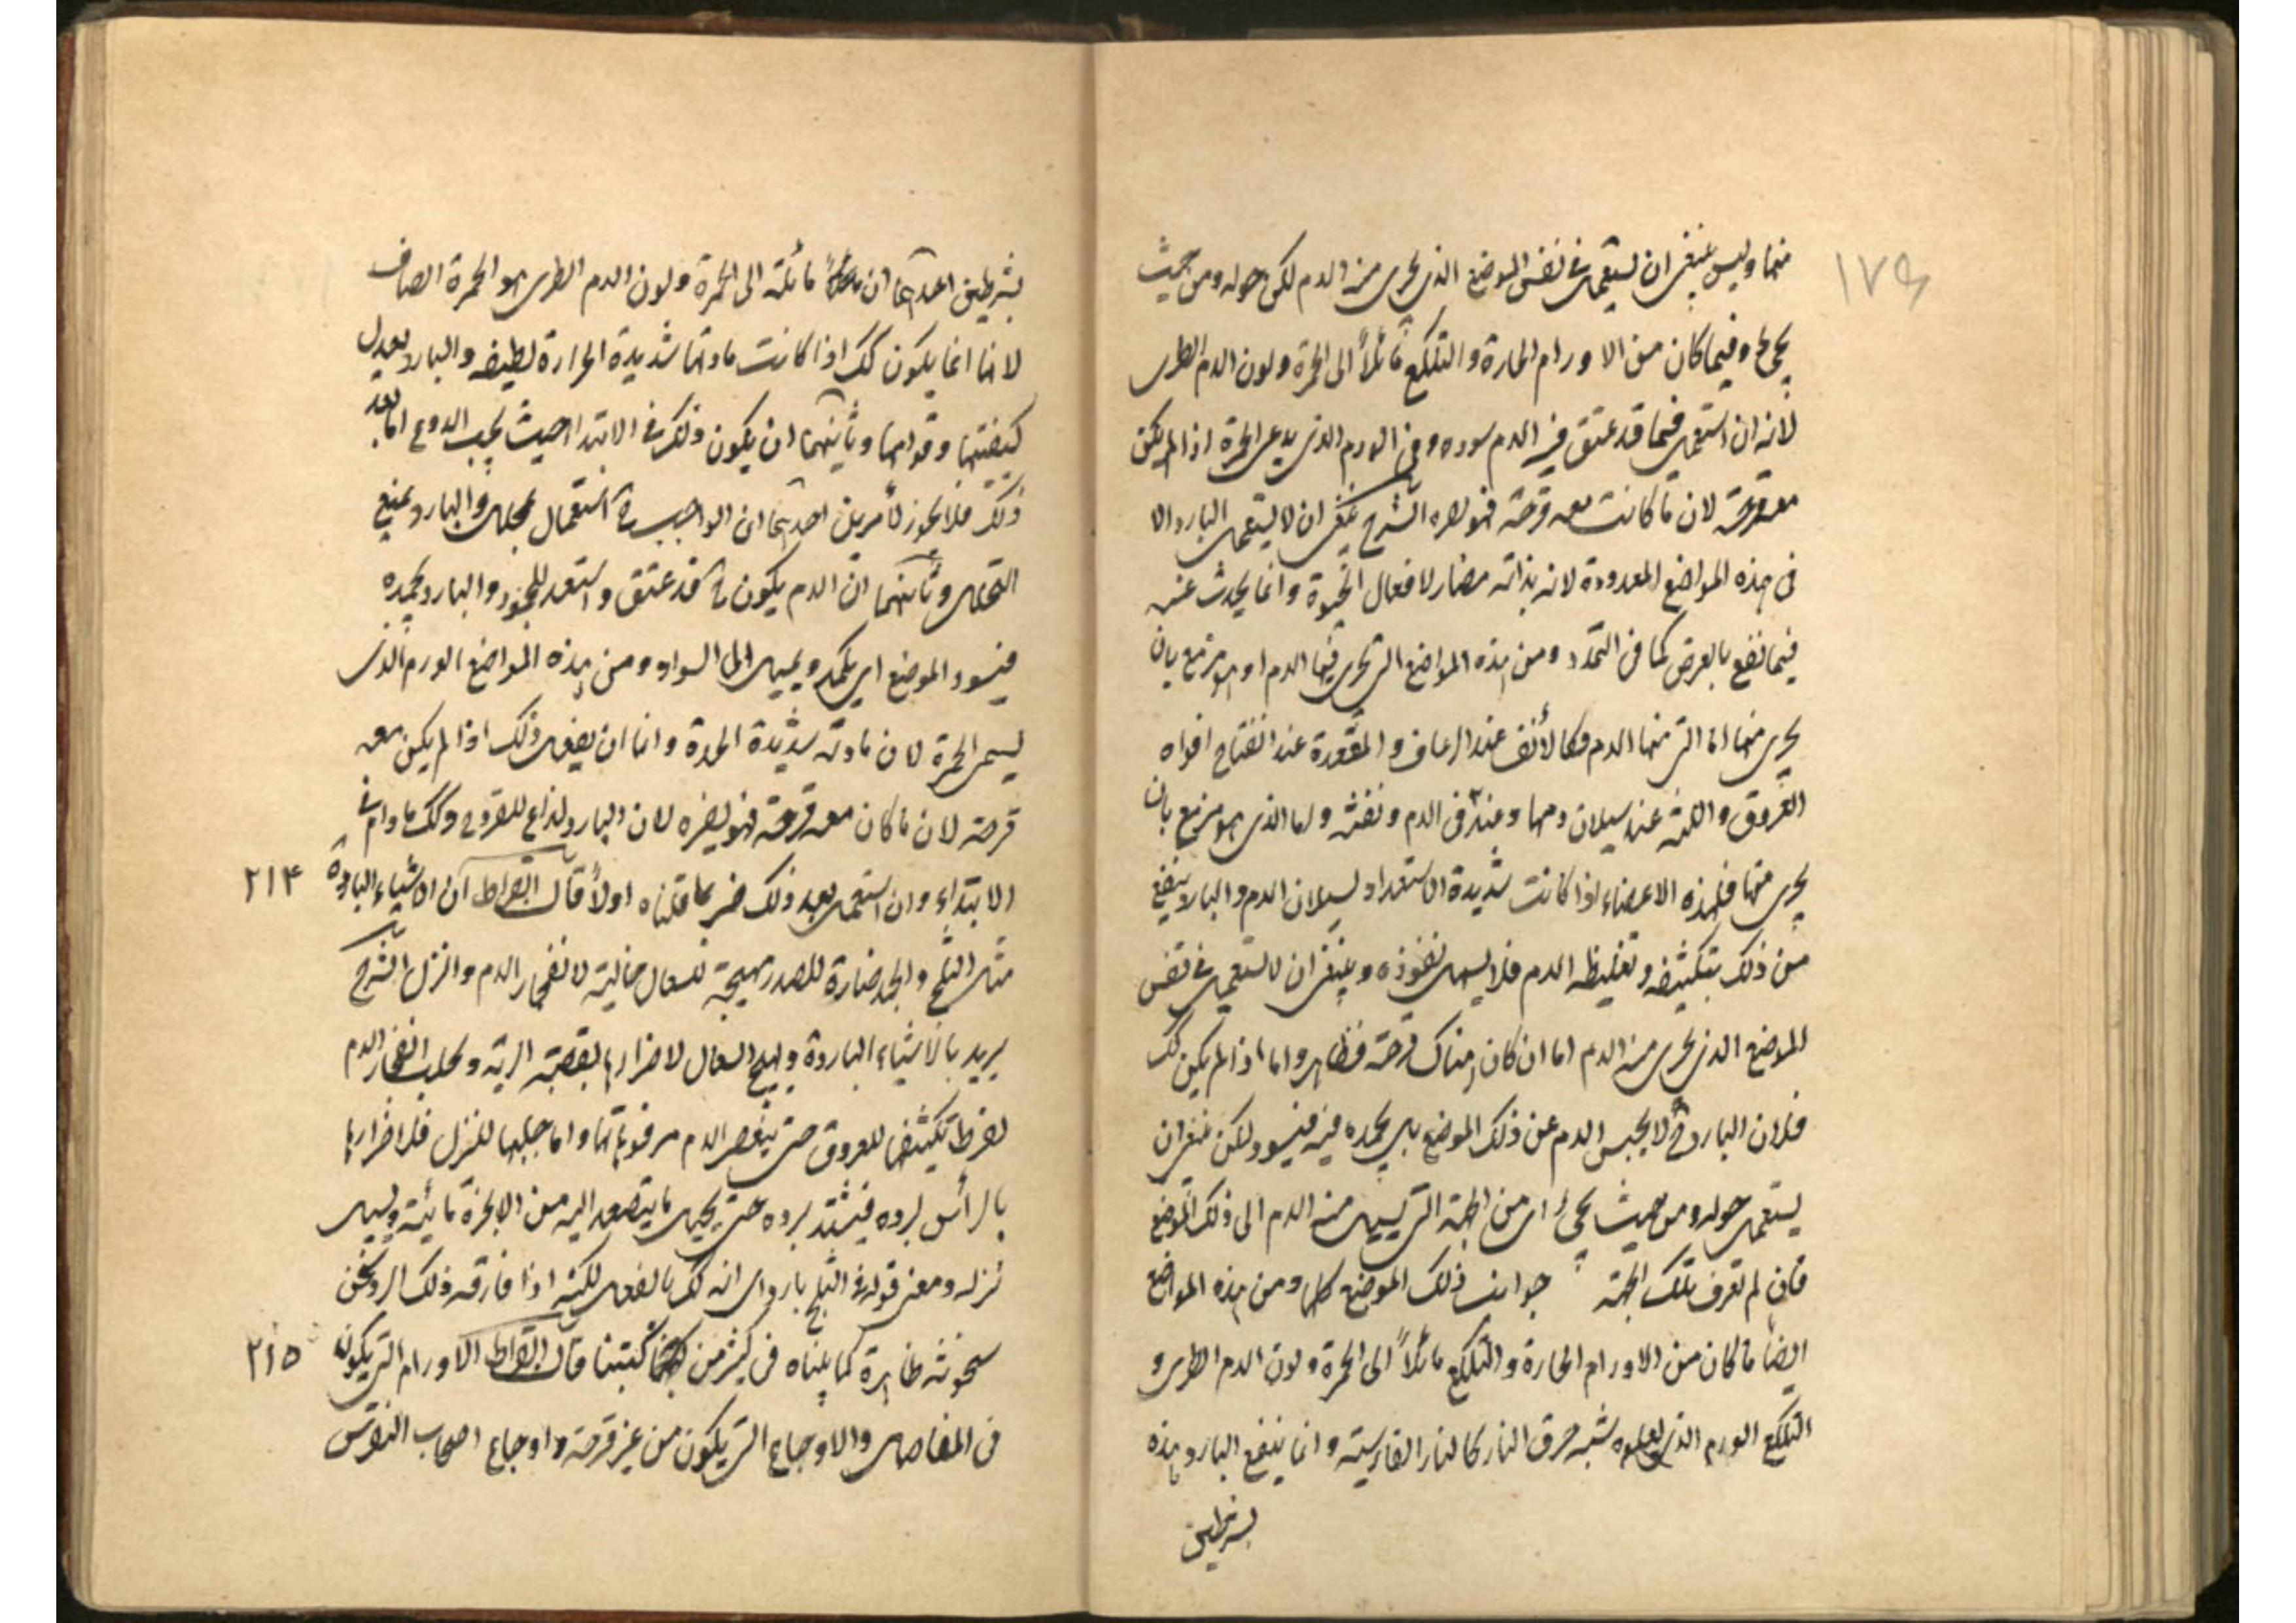 ١٧٩
منها وليس ينبغى ان يستعمل فى نفس الموضع الذى يجرى منه الدم لكن حوله ومن حيث
يجئ وفيما كان من الاورام الحارة والتلكع مائلاً الى الحمرة ولون الدم الطرى
لانه ان استعمل فيما قد عتق فيه الدم سوده وفى الورم الذى يدعى الحمرة اذا لم يكن
معه قرحة لان ما كانت معه قرحة فهو يضره الشرح ينبغى ان لا يستعمل البارد الا
فى هذه المواضع المعدودة لانه بذاته مضار لافعال الحيوة وانما يحدث عنه
فيما نفع بالعرض كما فى التمدد ومن هذه المواضع التى يجرى فيها الدم او هو مزمع بان
يجرى منها اما التى منها الدم فكالأنف عند الرعاف والمقعدة عند انفتاح افواه
العروق واللثة عند سيلان دمها وعند قئ الدم ونفثه واما الذى هو مزمع بان
يجرى منها فلهذه الاعضاء اذا كانت شديدة الاستعداد لسيلان الدم والبارد ينفع
من ذلك بتكثيفه وتغليظه الدم فلا يسهل نفوذه وينبغى ان لا يستعمل فى نفس
الموضع الذى يجرى منه الدم اما ان كان هناك قرحة فظاهر واما اذا لم يكن كك
فلان البارد ح لا يحبس الدم عن ذلك الموضع بل يجمده فيه فيسود لكن ينبغى ان
يستعمل حوله ومن حيث يجئ اى من الجهة التى يسيل منه الدم الى ذلك الموضع
فان لم تعرف تلك الجهة جوانب ذلك الموضع كلها ومن هذه المواضع
ايضاً ما كان من الاورام الحارة والتلكع مائلاً الى الحمرة ولون الدم الطرى و
التلكع الورم الذى يعلوه شبه حرق النار كالنار الفارسية وانما ينفع البارد هذه
بشرطين
بشرطين احدهما ان مائلة الى الحمرة ولون الدم الطرى هو الحمرة الصاف
لانها انما يكون كك اذا كانت مادتها شديدة الحرارة لطيفة والبارد يعدل
كيفيتها وقوامها وثانيهما ان يكون ذلك فى الابتداء حيث يجب الردع اما بعد
ذلك فلا يجوز لأمرين احدهما ان الواجب ح استعمال محلل والبارد يمنع
التحلل وثانيهما ان الدم يكون ح قد عتق واستعد للجمود والبارد يجمده
فيسود الموضع اى يكمد ويميل الى السواد ومن هذه المواضع الورم الذى
يسمى الحمرة لان مادته شديدة الحدة وانما ان يفعل ذلك اذا لم يكن معه
قرحة لان ما كان معه قرحة فهو يضره لان البارد لذاع للقروح وكك ما دام فى
الابتداء وان استعمل بعد ذلك ضر لما قلناه اولاً قال ابقراط ان الاشياء الباردة ٢١٤
مثل الثلج والجمد ضارة للصدر مهيجة للسعال جالبة لانفجار الدم والنزل الشرح
يريد بالاشياء الباردة ويهيج السعال لاضرارها بقصبة الرية وتجلب انفجار الدم
لفرط تكثيفها للعروق حتى ينعصر الدم من فوهاتها واما جلبها للنزل فلاضرارها
بالرأس لبرده فيشتد برده حتى يحيل ما يتصعد اليه من الابخرة مائية ويسيل
نزله ومعنى قوله فى الثلج بارد اى انه كك بالفعل لكنه اذا فارقه ذلك البرد تكون
سخونته ظاهرة كما بيناه فى كثير من كتبنا قال ابقراط الاورام التى يكون ٢١٥
فى المفاصل والاوجاع التى يكون من غير قرحة واوجاع اصحاب النقرس